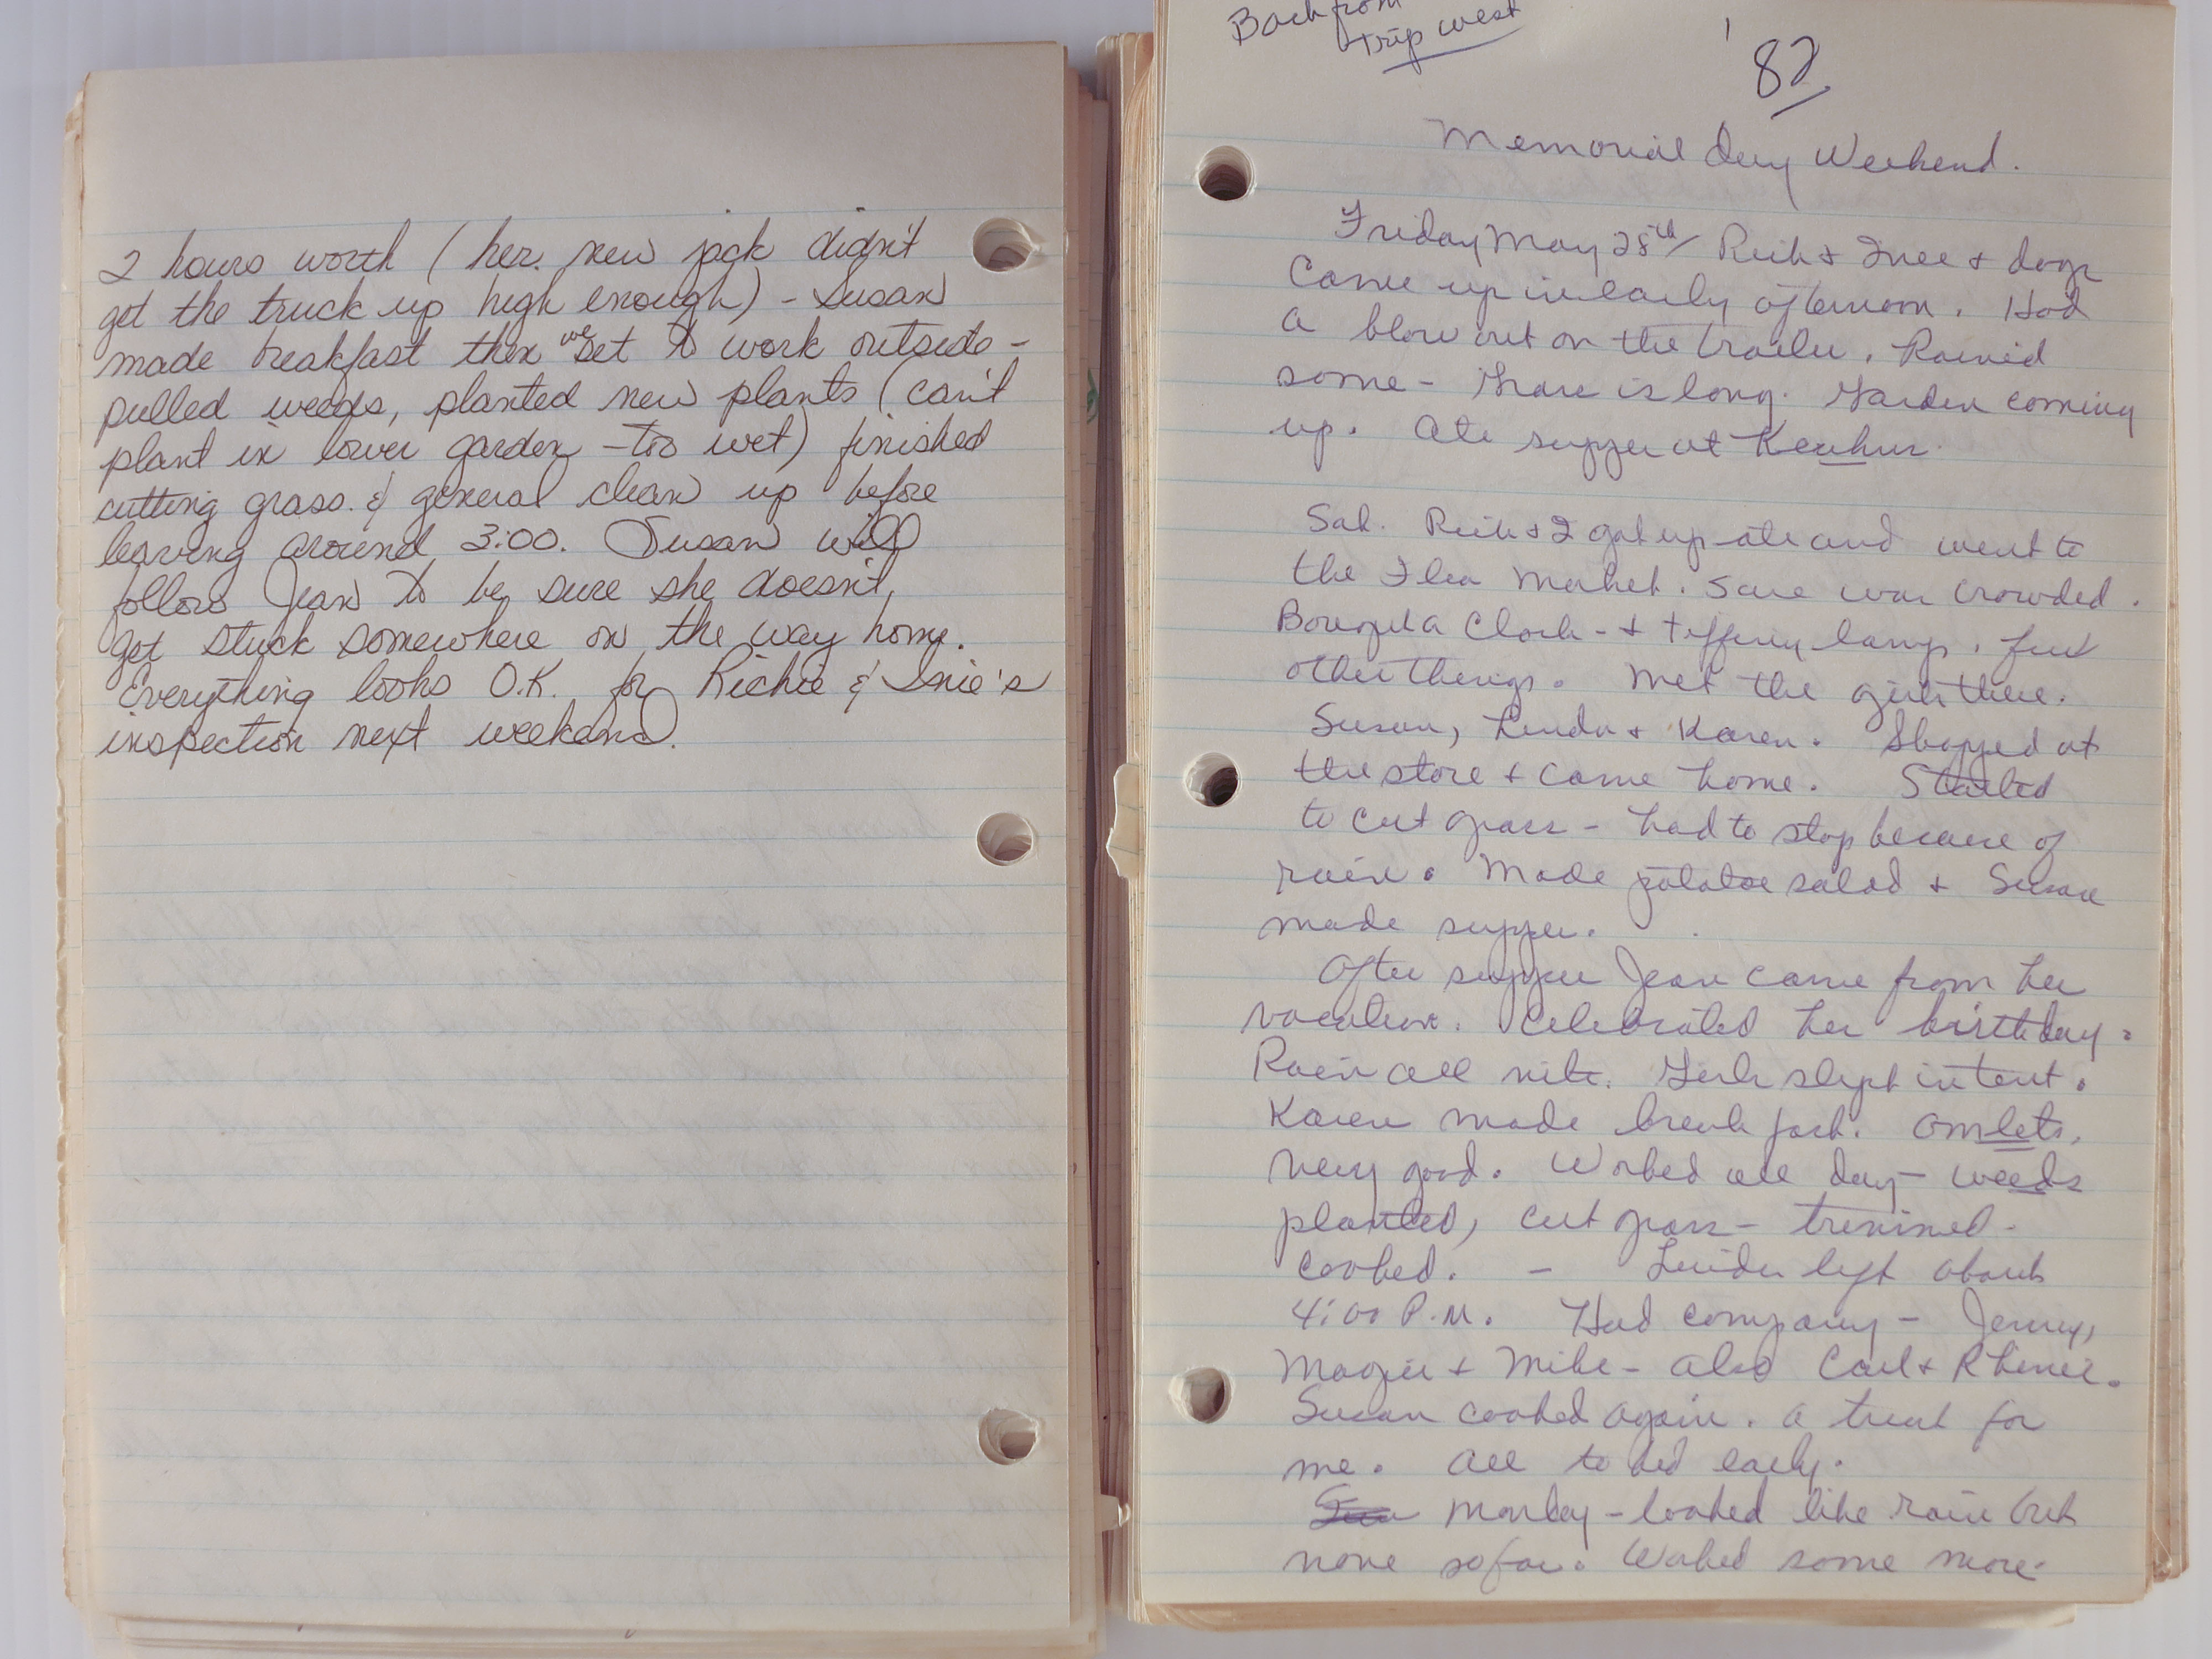 2 hours worth (her new jack didn't
get the truck up high enough) - Susan
made breakfast then we set to work outside -
pulled weeds, planted new plants (can't
plant in lower garden - too wet) finished
cutting grass & general clean up before
leaving around 3:00. Susan will
follow Jean to be sure she doesn't
get stuck somewhere on the way home.
Everything looks O.K. for Richie & Inie's
inspection next weekend.
Back from
trip west
'82
Memorial Day Weekend.
Friday May 28th Rich & Inee & dogs
Came up in early afternoon. Had
a blow out on the trailer. Rained
some - Grass is long. Garden coming
up. Ate supper at
Sat. Rich & I got up - ate and went to
the Flea Market. Sure was crowded.
Bought a Clock - & Tiffeny lamp. few
other things. Met the girls there.
Susan, Linda & Karen. Shopped at
the store & came home. Started
to cut grass - had to stop because of
rain. Made potatoe salad & Susan
made supper.
After supper Jean came from her
vacation. Celebrated her birthday.
Rain all nite. Girls slept in tent.
Karen made breakfast. Omlets,
very good. Worked all day - weeds
planted, cut grass - trimmed -
cooked. - Linda left about
4:00 P.M. Had company - Jenny,
Magie & Mike - also Carl &
Susan cooked again. a treat for
me. All to bed early.
Monday - looked like rain but
none so far. Worked some more.